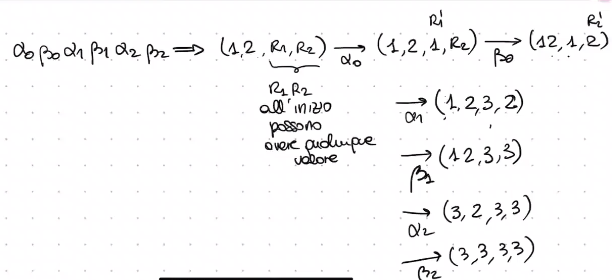 α₀ β₀ α₁ β₁ α₂ β₂ ⟹ (1,2,R₁,R₂) →α₀ (1,2,1,R₂) →β₀ (12,1,2)
R₁' R₂'
R₁ R₂
all'inizio
possono
avere qualunque
valore
→α₁ (1,2,3,2)
→β₁ (12,3,3)
→α₂ (3,2,3,3)
→β₂ (3,3,3,3)